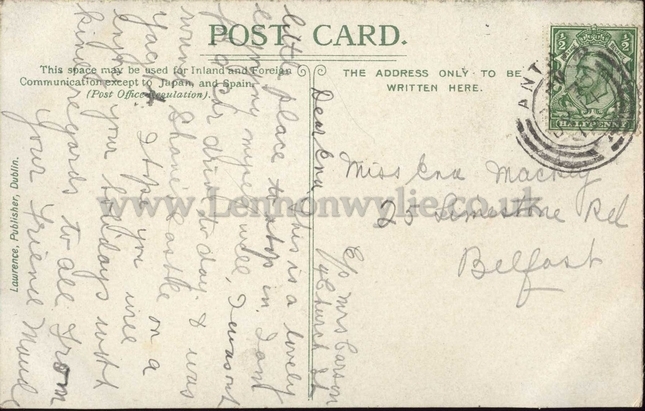 POST CARD.
This space may be used for Inland and Foreign
Communication except to Japan, and Spain.
(Post Office Regulation).
THE ADDRESS ONLY TO BE
WRITTEN HERE.
½
½
HALFPENNY
ANT
Dear Ena, this is a lovely
little place to stop in. I am
enjoying myself well, I was out
for a car drive to day. & was
round Shane's Castle
I hope you will
enjoy your holidays with
kind regards to all from
your friend Maud
C/o Mrs Carson
Church St
Miss Ena Mackey
25 Limestone Rd
Belfast
Lawrence, Publisher, Dublin.
www.Lennonwylie.co.uk